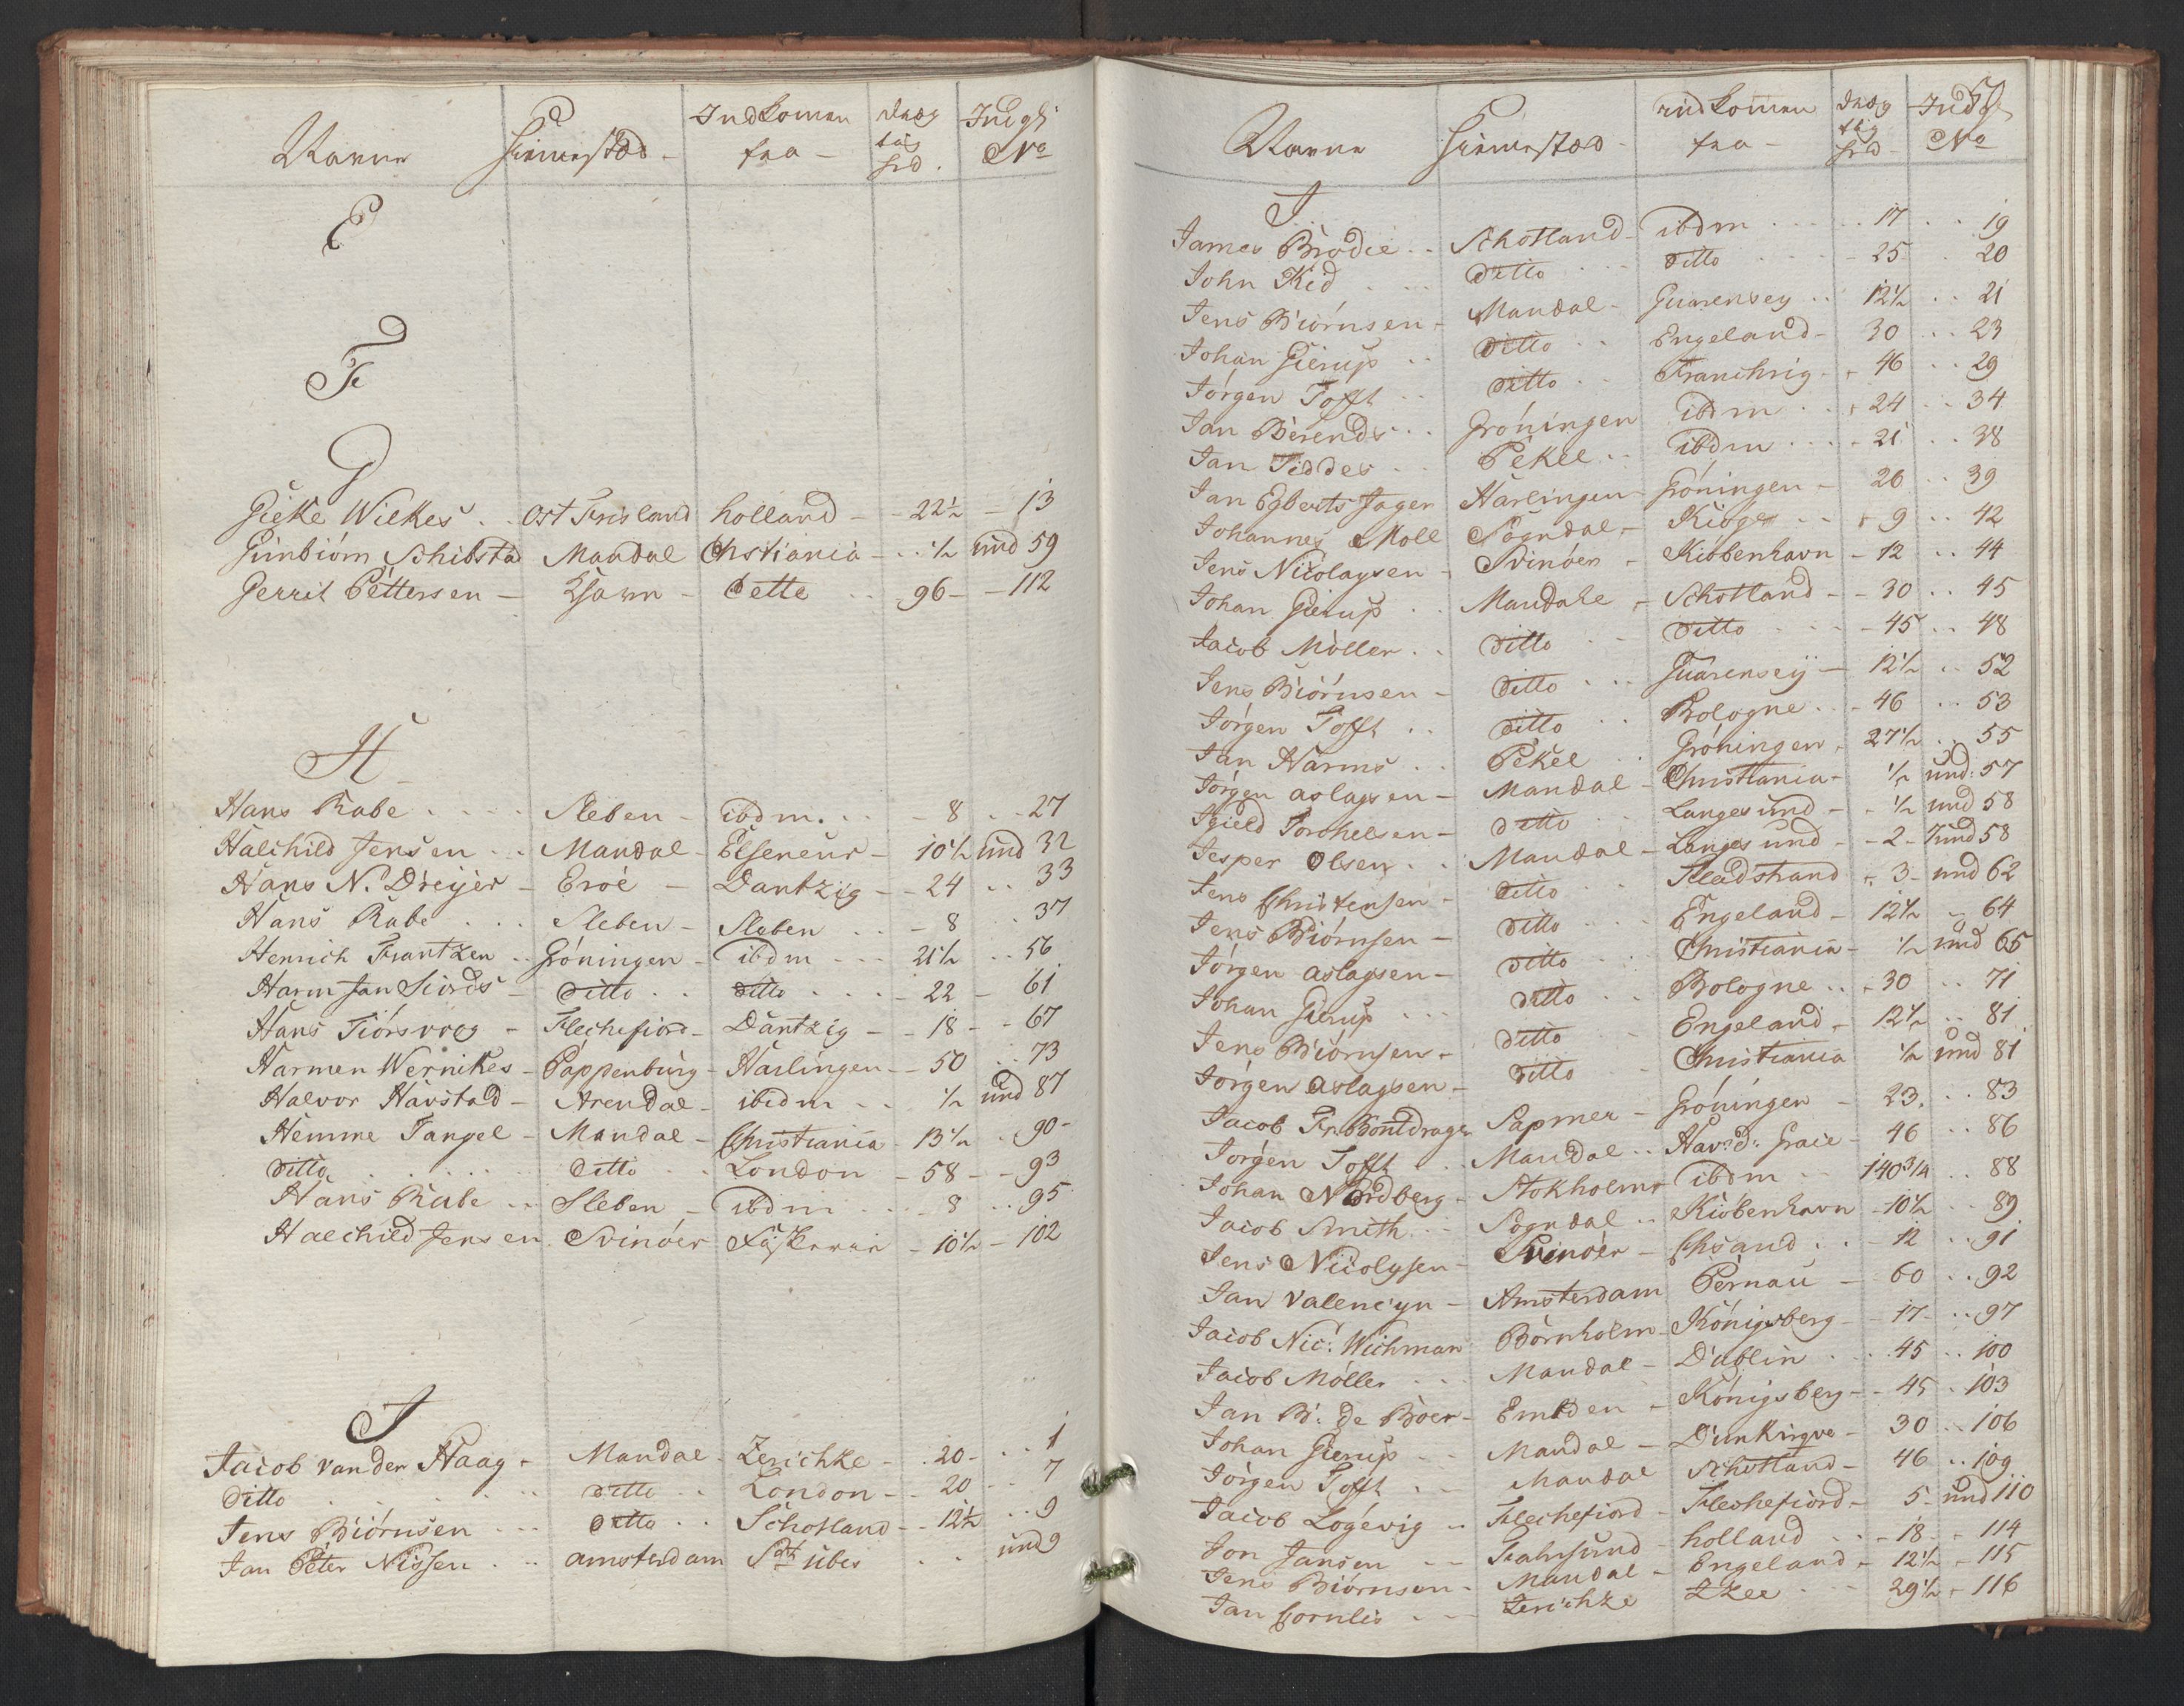 Navne Hiemstæd Indkomen fra dræg tig hed Indgl: No
E
F
G
Gieke Wilkes Ost Frisland holland 22½ 13
Gunbiörn Schibsta Mandal Chstiania ½ und 59
Gerrit Pettersen dette 96 112
H
Hans Rabe Sleben ibdm. 8 27
Halchild Jensen Mandal Elseneur 10½ und 32
Hans N. Dreyer Eroé Dantzig 24 33
Hans Rabe Sleben Sleben 8 37
Henrich Frantzen Gröningen ibdm 21½ 56
Harm Jan Siörds Ditto Ditto 22 61
Hans Tiörsvog Flechefiord Dantzig 18 67
Harmen Wernikes Pappenburg Harlingen 50 73
Halvor Havstad Arendal ibidm ½ und 87
Hemme Tangel Mandal Christiania 13½ 90
Ditto Ditto London 58 93
Hans Rabe Sleben ibdm 8 95
Halchild Jensen Svinöer 10½ 102
J
Jacob van der Haag Mandal Zerichze 20 1
Ditto Ditto London 20 7
Jens Biörnsen Ditto Schotland 12½ 9
Jan Peter Nissen amsterdam St übes und 9
Navne Hiemstæd indkomen fra dræg tig hed Indgl No
J
James Brodie Schotland ibdm 17 19
John Kid Ditto Ditto 25 20
Jens Biörnsen Mandal Guarensey 12½ 21
Johan Gierup Ditto Engeland 30 23
Jörgen Tofft Ditto Franchrig 46 29
Jan Berends Gröningen ibdm 24 34
Jan Fiddes Pekel ibdm 21 38
Jan Egberts Jager Harlingen Gröningen 26 39
Johannes Moll Sogndal Kiöge 9 42
Jens Nicolaysen Svinöer Kiöbenhavn 12 44
Johan Gierup Mandahl Schotland 30 45
Jacob Möller Ditto Ditto 45 48
Jens Biörnsen Ditto Guarensey 12½ 52
Jörgen Tofft Ditto Bologne 46 53
Jan Harms Pekel Gröningen 27½ 55
Jörgen aslagsen Mandal Christiania ½ und: 57
Torchelsen Ditto Langesund ½ und 58
Jesper Olsen Mandal Langesund 2 und 58
Jens Christensen Ditto Fladstrand 3 und 62
Jens Biörnsen Ditto Engeland 12½ 64
Jörgen aslagsen Ditto Christiania ½ und 65
Johan Gierup Ditto Bologne 30 71
Jens Biörnsen Ditto Engeland 12½ 81
Jörgen aslagsen Ditto Christiania ½ und 81
Jacob Fr. Bontdrager Sapmer Gröningen 23. 83
Jörgen Tofft Mandal Hav: d: Grace 46 86
Johan Nordberg Stokholms ibdm 140¾ 88
Jacob Smith Sogndal Kiöbenhavn 10½ 89
Jens Nicolysen Svinöer Chsand 12 91
Jan Valencyn Amsterdam Pernau 60 92
Jacob Nic: Wichman Bornholm Königsberg 17 97
Jacob Möller Mandal Dublin 45 100
Jan B: de Boer Embden Königsberg 45 103
Johan Gierup Mandal Dunkirque 30 106
Jörgen Tofft Mandal Schotland 46 109
Jacob Logevig Flechefiord Flechefiord 5 und 110
Jon Jansen Fahrsund holland 18 114
Jens Biörnsen Mandal Engeland 12½ 115
Jan Cornlis Zerichze Zzee 29½ 116